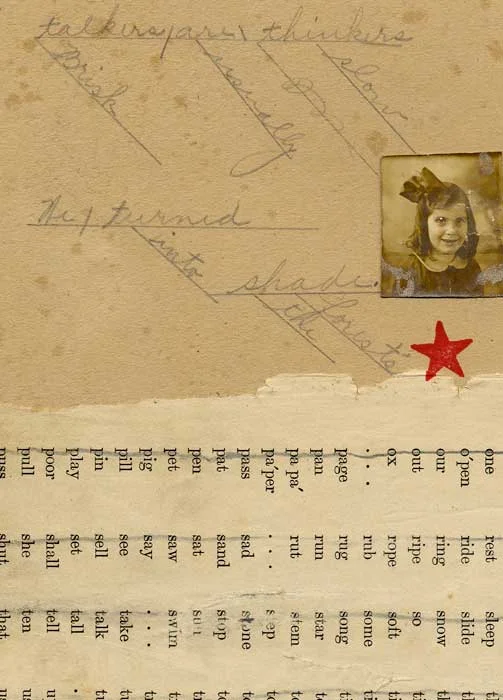 talkers are thinkers
Brisk usually slow
He turned
into
shade.
the forest's
one rest sleep
o'pen ride slide
our ring snow
out ripe so
ox rope soft
. . . rub some
page rug song
pan run star
pa pa' rut stem
pa'per . . . step
pass sad stone
pat sand stop
pen sat sun
pet saw swim
pig say . . .
pill see take
pin sell talk
play set tall
poor shall tell
pull she ten
puss shut that